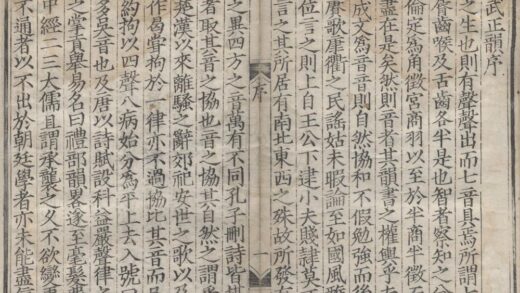 武正韻序
之生也則有聲聲出而七音具焉所謂
脣齒喉及舌齒各半是也智者察知之分
倫定為角徵宮商羽以至於半商半徵
盡在是矣然則音者其韻書之權輿乎
成文為音音則自然協和不假勉強而後
賡歌康衢之民謠姑未暇論至如國風
位言之則上自王公下逮小夫賤隸莫
言之其所居有南北東西之殊故所發
序
一
之異四方之音萬有不同孔子刪詩皆
者取其音之協也音之協其自然之謂
楚漢以來離騷之辭郊祀安世之歌以
作曷嘗拘於一律亦不過協比其音而
約拘以四聲八病始分為平上去入號
多吳音也及唐以詩賦設科益嚴聲律
之掌貢舉易名曰禮部韻畧遂至毫髮
中經二三大儒且謂承襲之久不欲變
不通者以不出於朝廷學者亦未能盡信